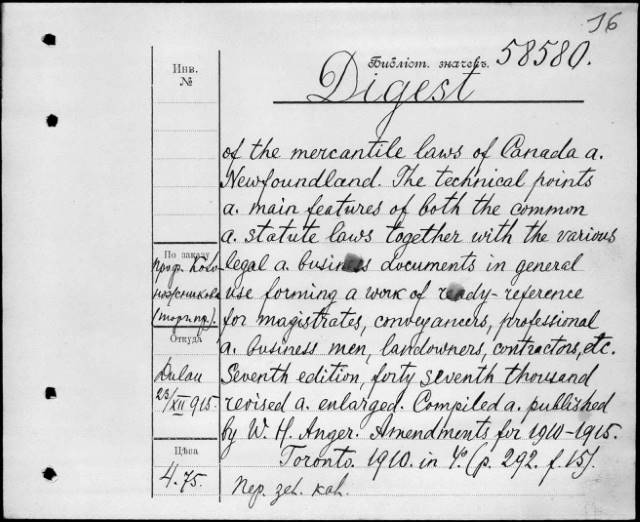 16
Библіот. значекъ. 58580.
Инв.
№
Digest
of the mercantile laws of Canada a.
Newfoundland. The technical points
a. main features of both the common
a. statute laws together with the various
legal a. business documents in general
use forming a work of ready-reference
for magistrates, conveyancers, professional
a. business men, landowners, contractors, etc.
Seventh edition, forty seventh thousand
revised a. enlarged. Compiled a. published
by W. H. Anger. Amendments for 1910-1915.
Toronto. 1910. in 4º. (p. 292. f. 15).
Пер. зел. кол.
По заказу
проф. Ново
(торг. пр.).
Откуда
Dulau
23/XII 915.
Цѣна
4.75.